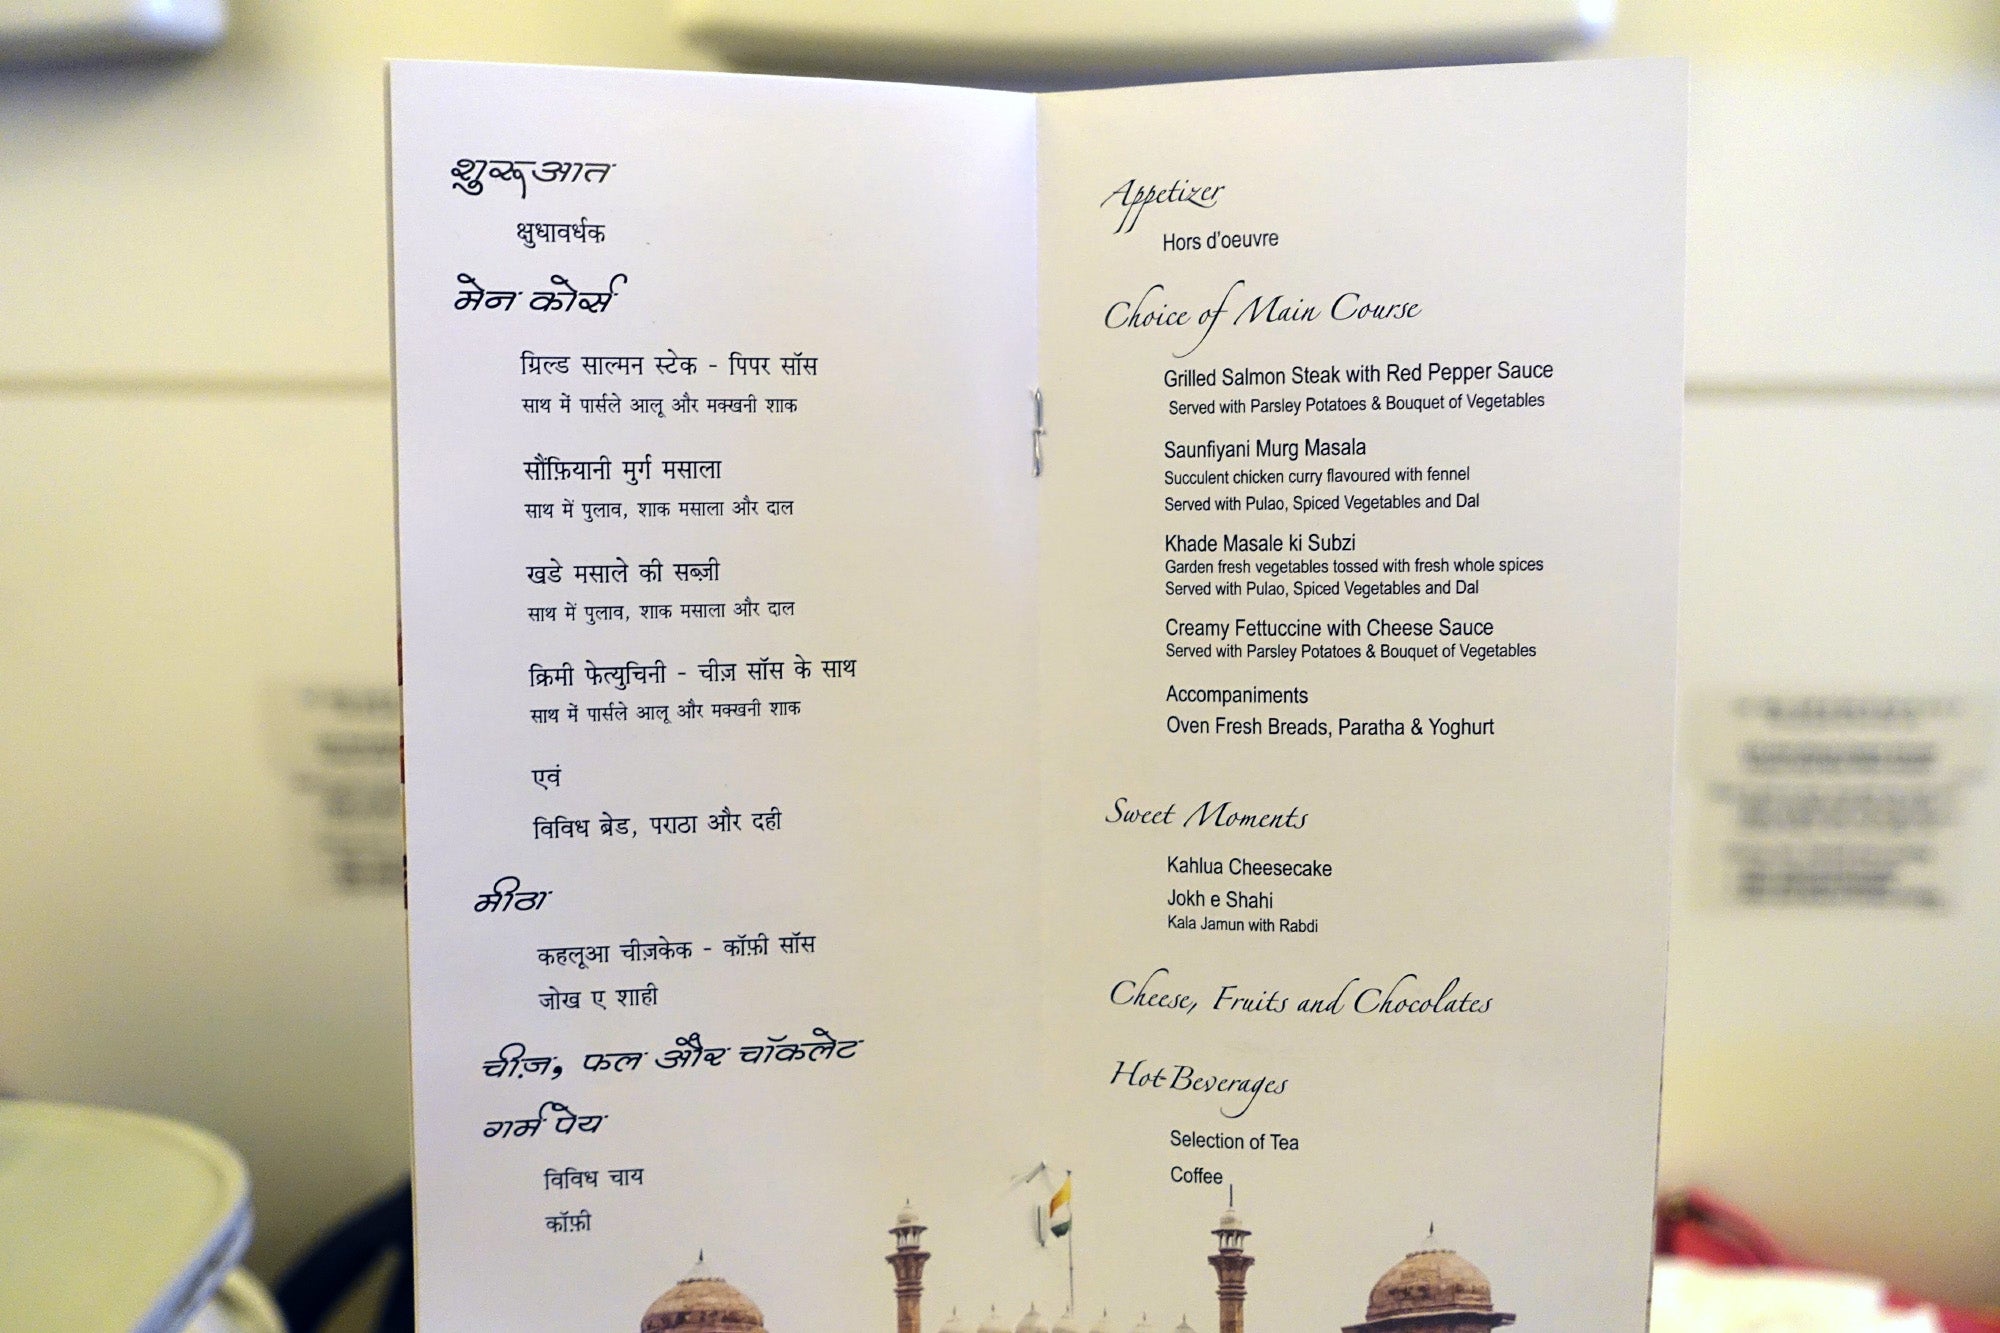 शुरूआत
क्षुधावर्धक
मेन कोर्स
ग्रिल्ड साल्मन स्टेक - पिपर सॉस
साथ में पार्सले आलू और मक्खनी शाक
सौंफ़ियानी मुर्ग मसाला
साथ में पुलाव, शाक मसाला और दाल
खडे मसाले की सब्ज़ी
साथ में पुलाव, शाक मसाला और दाल
क्रिमी फेत्युचिनी - चीज़ सॉस के साथ
साथ में पार्सले आलू और मक्खनी शाक
एवं
विविध ब्रेड, पराठा और दही
मीठा
कहलूआ चीज़केक - कॉफ़ी सॉस
जोख ए शाही
चीज़, फल और चॉकलेट
गर्म पेय
विविध चाय
कॉफ़ी
Appetizer
Hors d'oeuvre
Choice of Main Course
Grilled Salmon Steak with Red Pepper Sauce
Served with Parsley Potatoes & Bouquet of Vegetables
Saunfiyani Murg Masala
Succulent chicken curry flavoured with fennel
Served with Pulao, Spiced Vegetables and Dal
Khade Masale ki Subzi
Garden fresh vegetables tossed with fresh whole spices
Served with Pulao, Spiced Vegetables and Dal
Creamy Fettuccine with Cheese Sauce
Served with Parsley Potatoes & Bouquet of Vegetables
Accompaniments
Oven Fresh Breads, Paratha & Yoghurt
Sweet Moments
Kahlua Cheesecake
Jokh e Shahi
Kala Jamun with Rabdi
Cheese, Fruits and Chocolates
Hot Beverages
Selection of Tea
Coffee